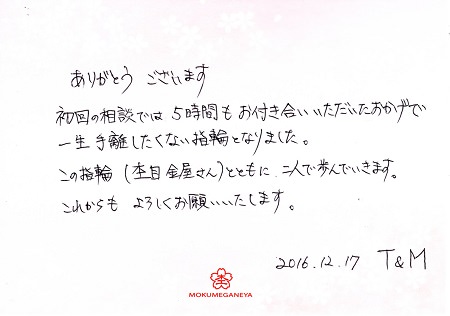 ありがとう ございます
初回の相談では 5時間も お付き合い いただいたおかげで
一生 手離したくない 指輪となりました。
この指輪（杢目金屋さん）とともに、二人で歩んでいきます。
これからも よろしくお願いいたします。
2016.12.17 T&M
杢
MOKUMEGANEYA